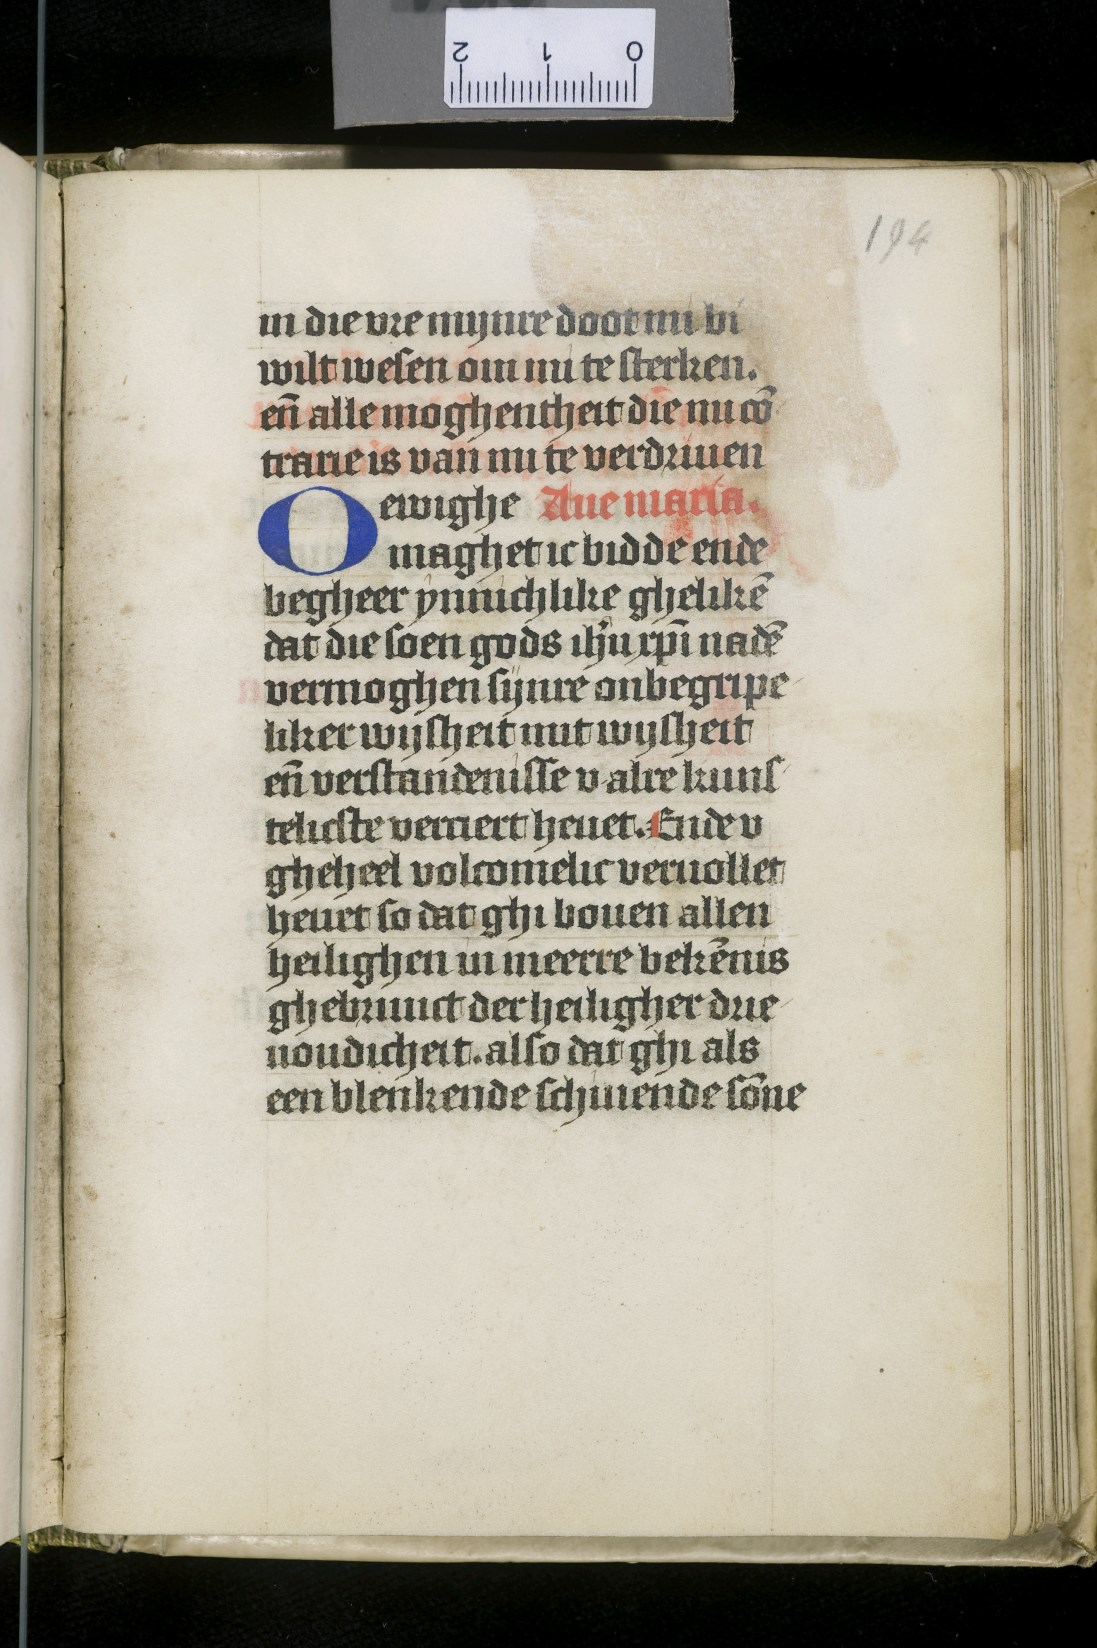 2 1 0
194
in die vre mijnre doot mi bi
wilt wesen om mi te sterken.
en̄ alle moghentheit die mi cō
trarie is van mi te verdriuen
O ewighe Aue maria.
maghet ic bidde ende
begheer ynnichlike ghelikē
dat die soen gods ih̄u xp̄i nadē
vermoghen sijnre onbegripe
liker wijsheit mit wijsheit
en̄ verstandenisse v alre kuns
telicste verciert heuet. Ende v
gheheel volcomelic veruollet
heuet so dat ghi bouen allen
heilighen in meerre bekēnis
ghebruuct der heiligher drie
uoudicheit. also dat ghi als
een blenkende schinende sōne